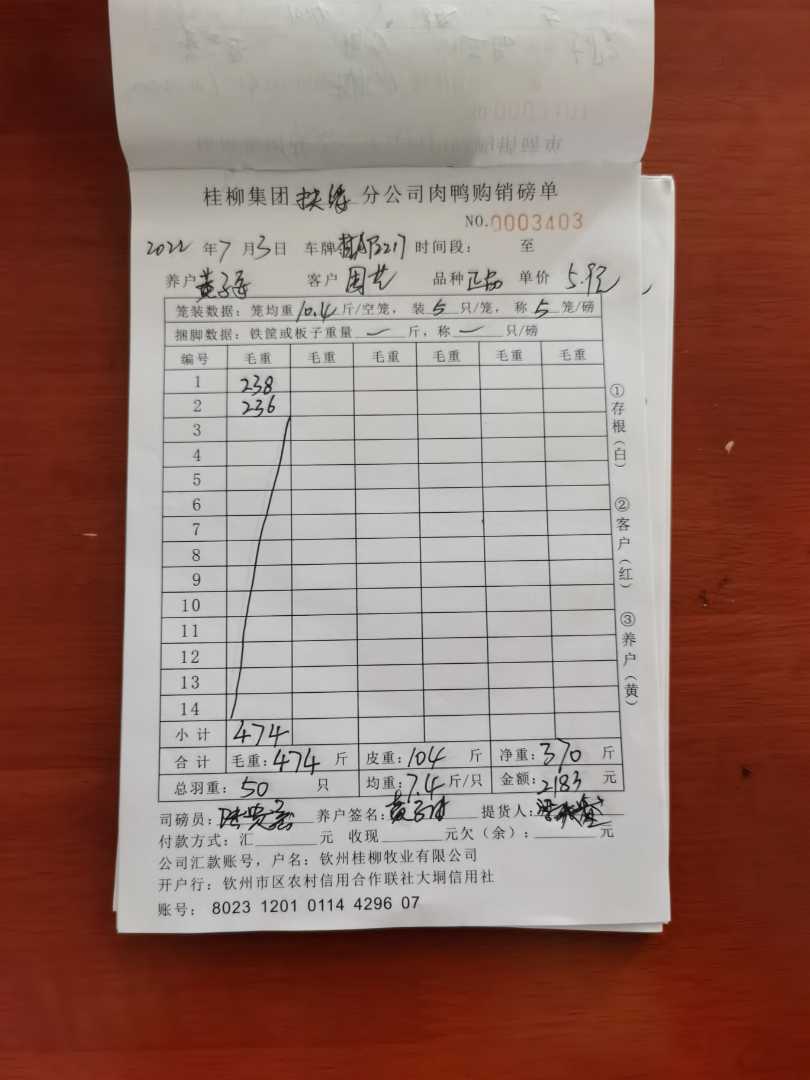 桂柳集团扶绥分公司肉鸭购销磅单
NO.0003403
2022年7月3日 车牌 217 时间段： 至
养户 黄 客户 周 品种 正 单价 5.9元
笼装数据：笼均重10.4斤/空笼，装5只/笼，称5笼/磅
捆脚数据：铁筐或板子重量一斤，称一只/磅
编号 毛重 毛重 毛重 毛重 毛重 毛重
1 238
2 236
3
4
5
6
7
8
9
10
11
12
13
14
小计 474
合计 毛重：474斤 皮重：104斤 净重：370斤
总羽重：50只 均重：7.4斤/只 金额：2183元
司磅员： 养户签名：黄 提货人：
付款方式：汇 元 收现 元欠（余）： 元
公司汇款账号，户名：钦州桂柳牧业有限公司
开户行：钦州市区农村信用合作联社大垌信用社
账号：8023 1201 0114 4296 07
①存根（白）
②客户（红）
③养户（黄）